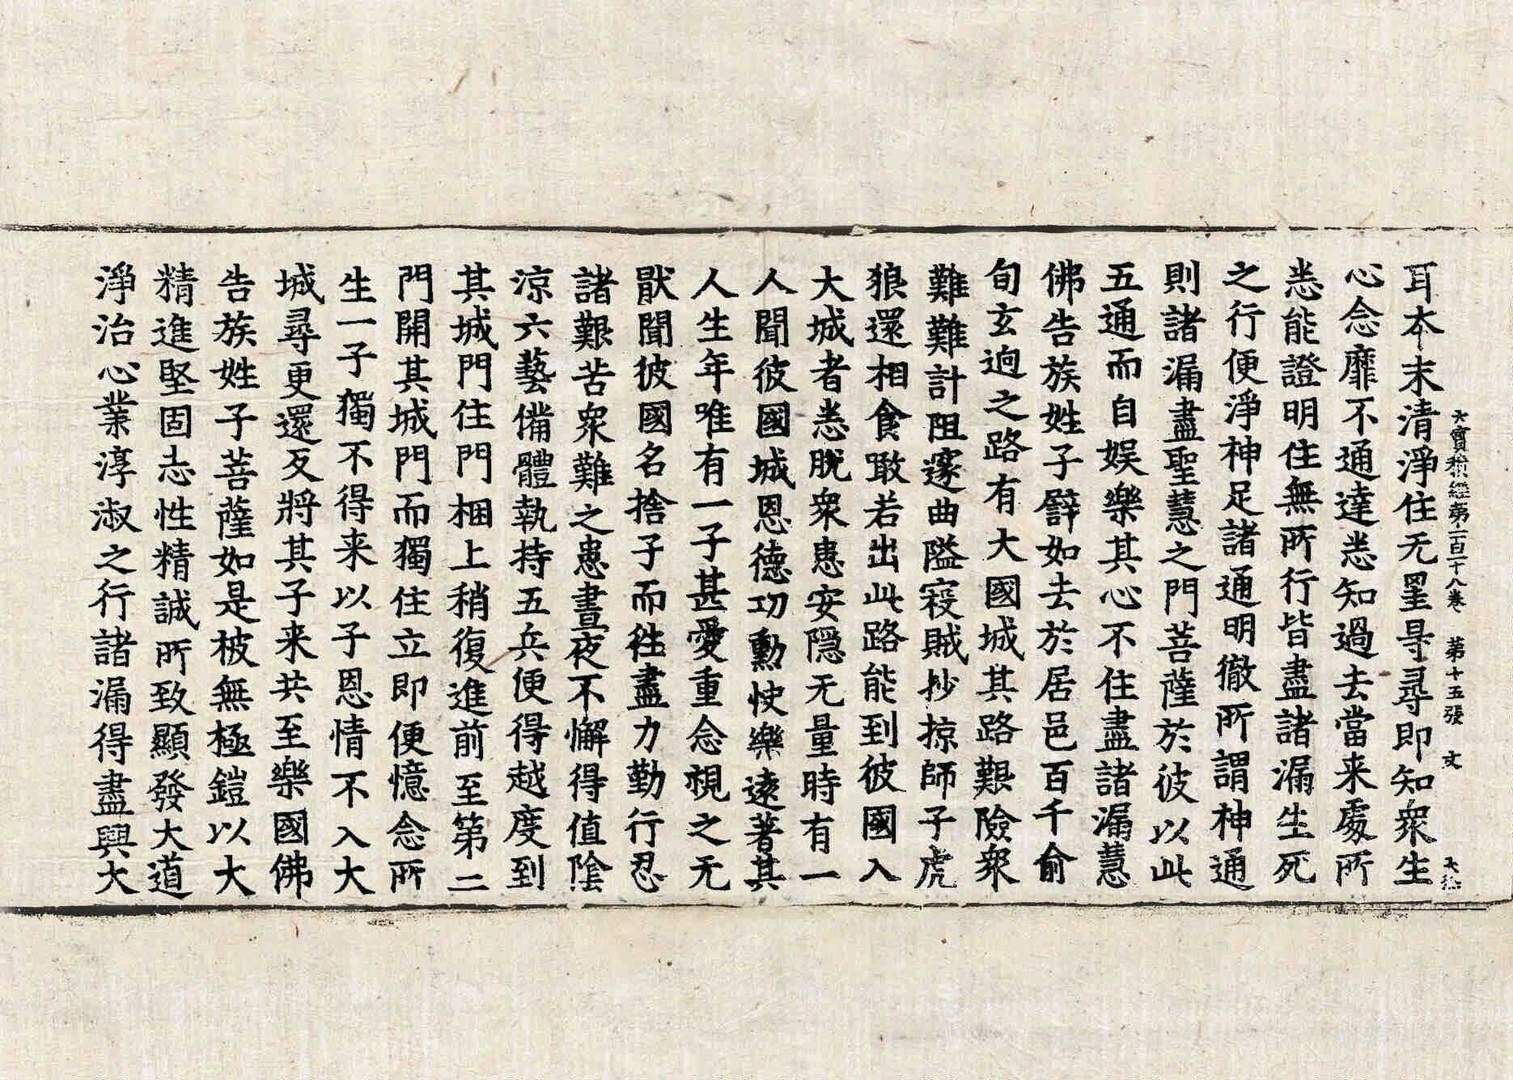 大寶積經第一百十八卷　第十五張　文
耳本末清淨住无罣㝵尋即知衆生
心念靡不通達悉知過去當来處所
悉能證明住無所行皆盡諸漏生死
之行便淨神足諸通明徹所謂神通
則諸漏盡聖慧之門菩薩於彼以此
五通而自娛樂其心不住盡諸漏慧
佛告族姓子譬如去於居邑百千俞
旬玄逈之路有大國城其路艱險衆
難難計阻邃曲隘寇賊抄掠師子虎
狼還相食噉若出此路能到彼國入
大城者悉脫衆患安隱无量時有一
人聞彼國城恩德功勳快樂遠著其
人生年唯有一子甚愛重念視之无
猒聞彼國名捨子而往盡力勤行忍
諸艱苦衆難之患晝夜不懈得值陰
涼六藝備體執持五兵便得越度到
其城門住門梱上稍復進前至第二
門開其城門而獨住立即便憶念所
生一子獨不得来以子恩情不入大
城尋更還反將其子来共至樂國佛
告族姓子菩薩如是被無極鎧以大
精進堅固志性精誠所致顯發大道
淨治心業淳淑之行諸漏得盡興大